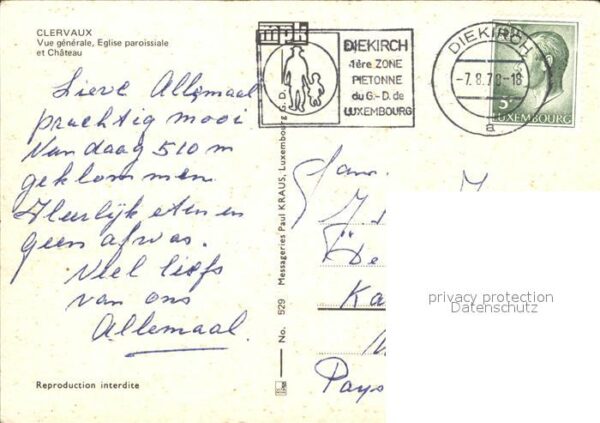 CLERVAUX
Vue générale, Eglise paroissiale
et Château
Lieve Allemaal
prachtig mooi
Vandaag 510 m
geklommen
Heerlijk eten en
geen afwas.
Veel liefs
van ons
Allemaal.
Reproduction interdite
No. 529 Messageries Paul KRAUS, Luxembourg G. D.
mpk
DIEKIRCH
1ère ZONE
PIETONNE
du G.-D. de
LUXEMBOURG
DIEKIRCH
-7.8.78-18
a
LUXEMBOURG
Fam.
Ka
Pays
privacy protection
Datenschutz